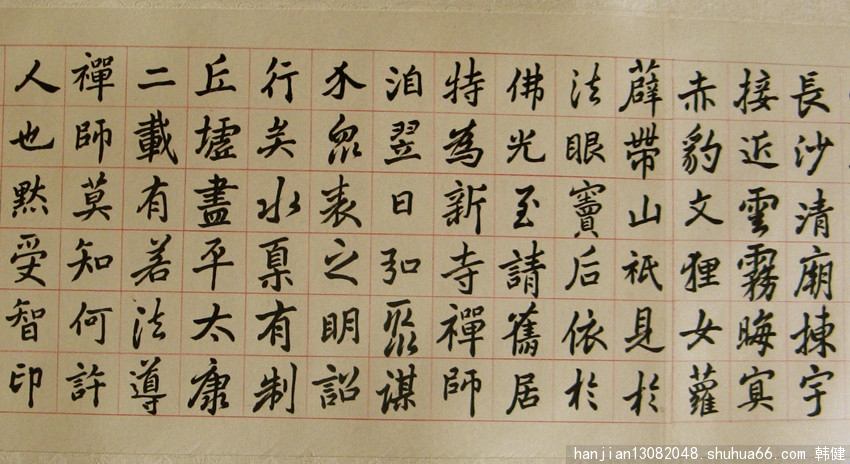 長沙清廟棟宇
接近雲霧晦㝠
赤豹文狸女蘿
薜帶山祇見於
法眼竇后依於
佛光至請舊居
特為新寺禪師
洎翌日弘聚謀
介眾表之明詔
行矣水臬有制
丘墟盡平太康
二載有若法導
禪師莫知何許
人也黙受智印
hanjian13082048.shuhua66.com 韩健